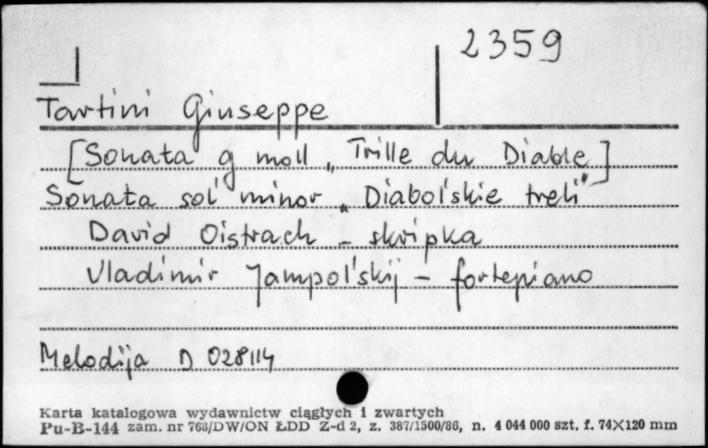 2359
Tartini Giuseppe
[Sonata g moll „Trille du Diable]
Sonata sol' minor „Diabol'skie treli"
David Oistrach – skripka
Vladimir Jampol'skij – fortepiano
Melodija D 028114
Karta katalogowa wydawnictw ciągłych i zwartych
Pu-B-144 zam. nr 768/DW/ON ŁDD Z-d 2, z. 387/1500/86, n. 4 044 000 szt. f. 74×120 mm